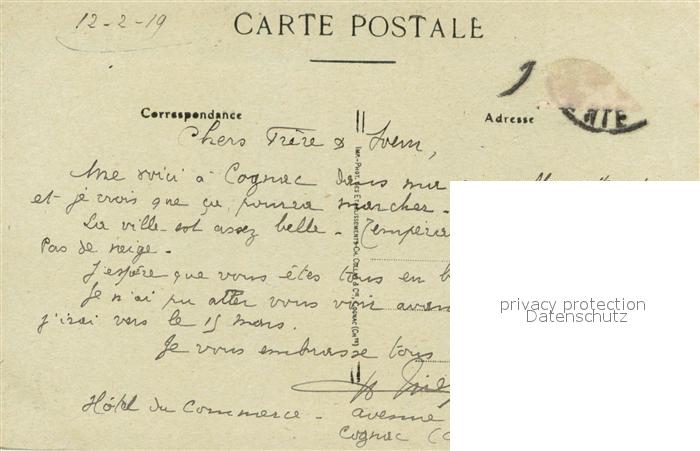 12-2-19
CARTE POSTALE
Correspondance
Adresse
Chers Frère &
Me voici à Cognac dans ma
et je crois que ça pourra marcher -
La ville est assez belle -
Pas de neige -
J'espère que vous êtes tous en b
Je n'ai pu aller vous voir avan
j'irai vers le 15 mars.
Je vous embrasse tous
Hôtel du Commerce - avenue
Cognac (C
privacy protection
Datenschutz